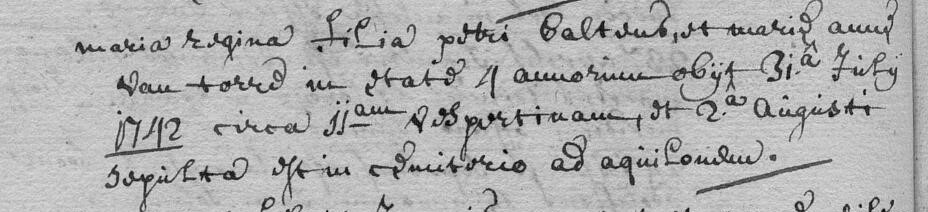 maria regina filia petri baltens, et mariæ annæ
van torre in ætate 4 annorum obijt 31.â Julij
1742 circa 11am vespertinam, et 2.â Augusti
sepulta est in cæmiterio ad aquilonem.